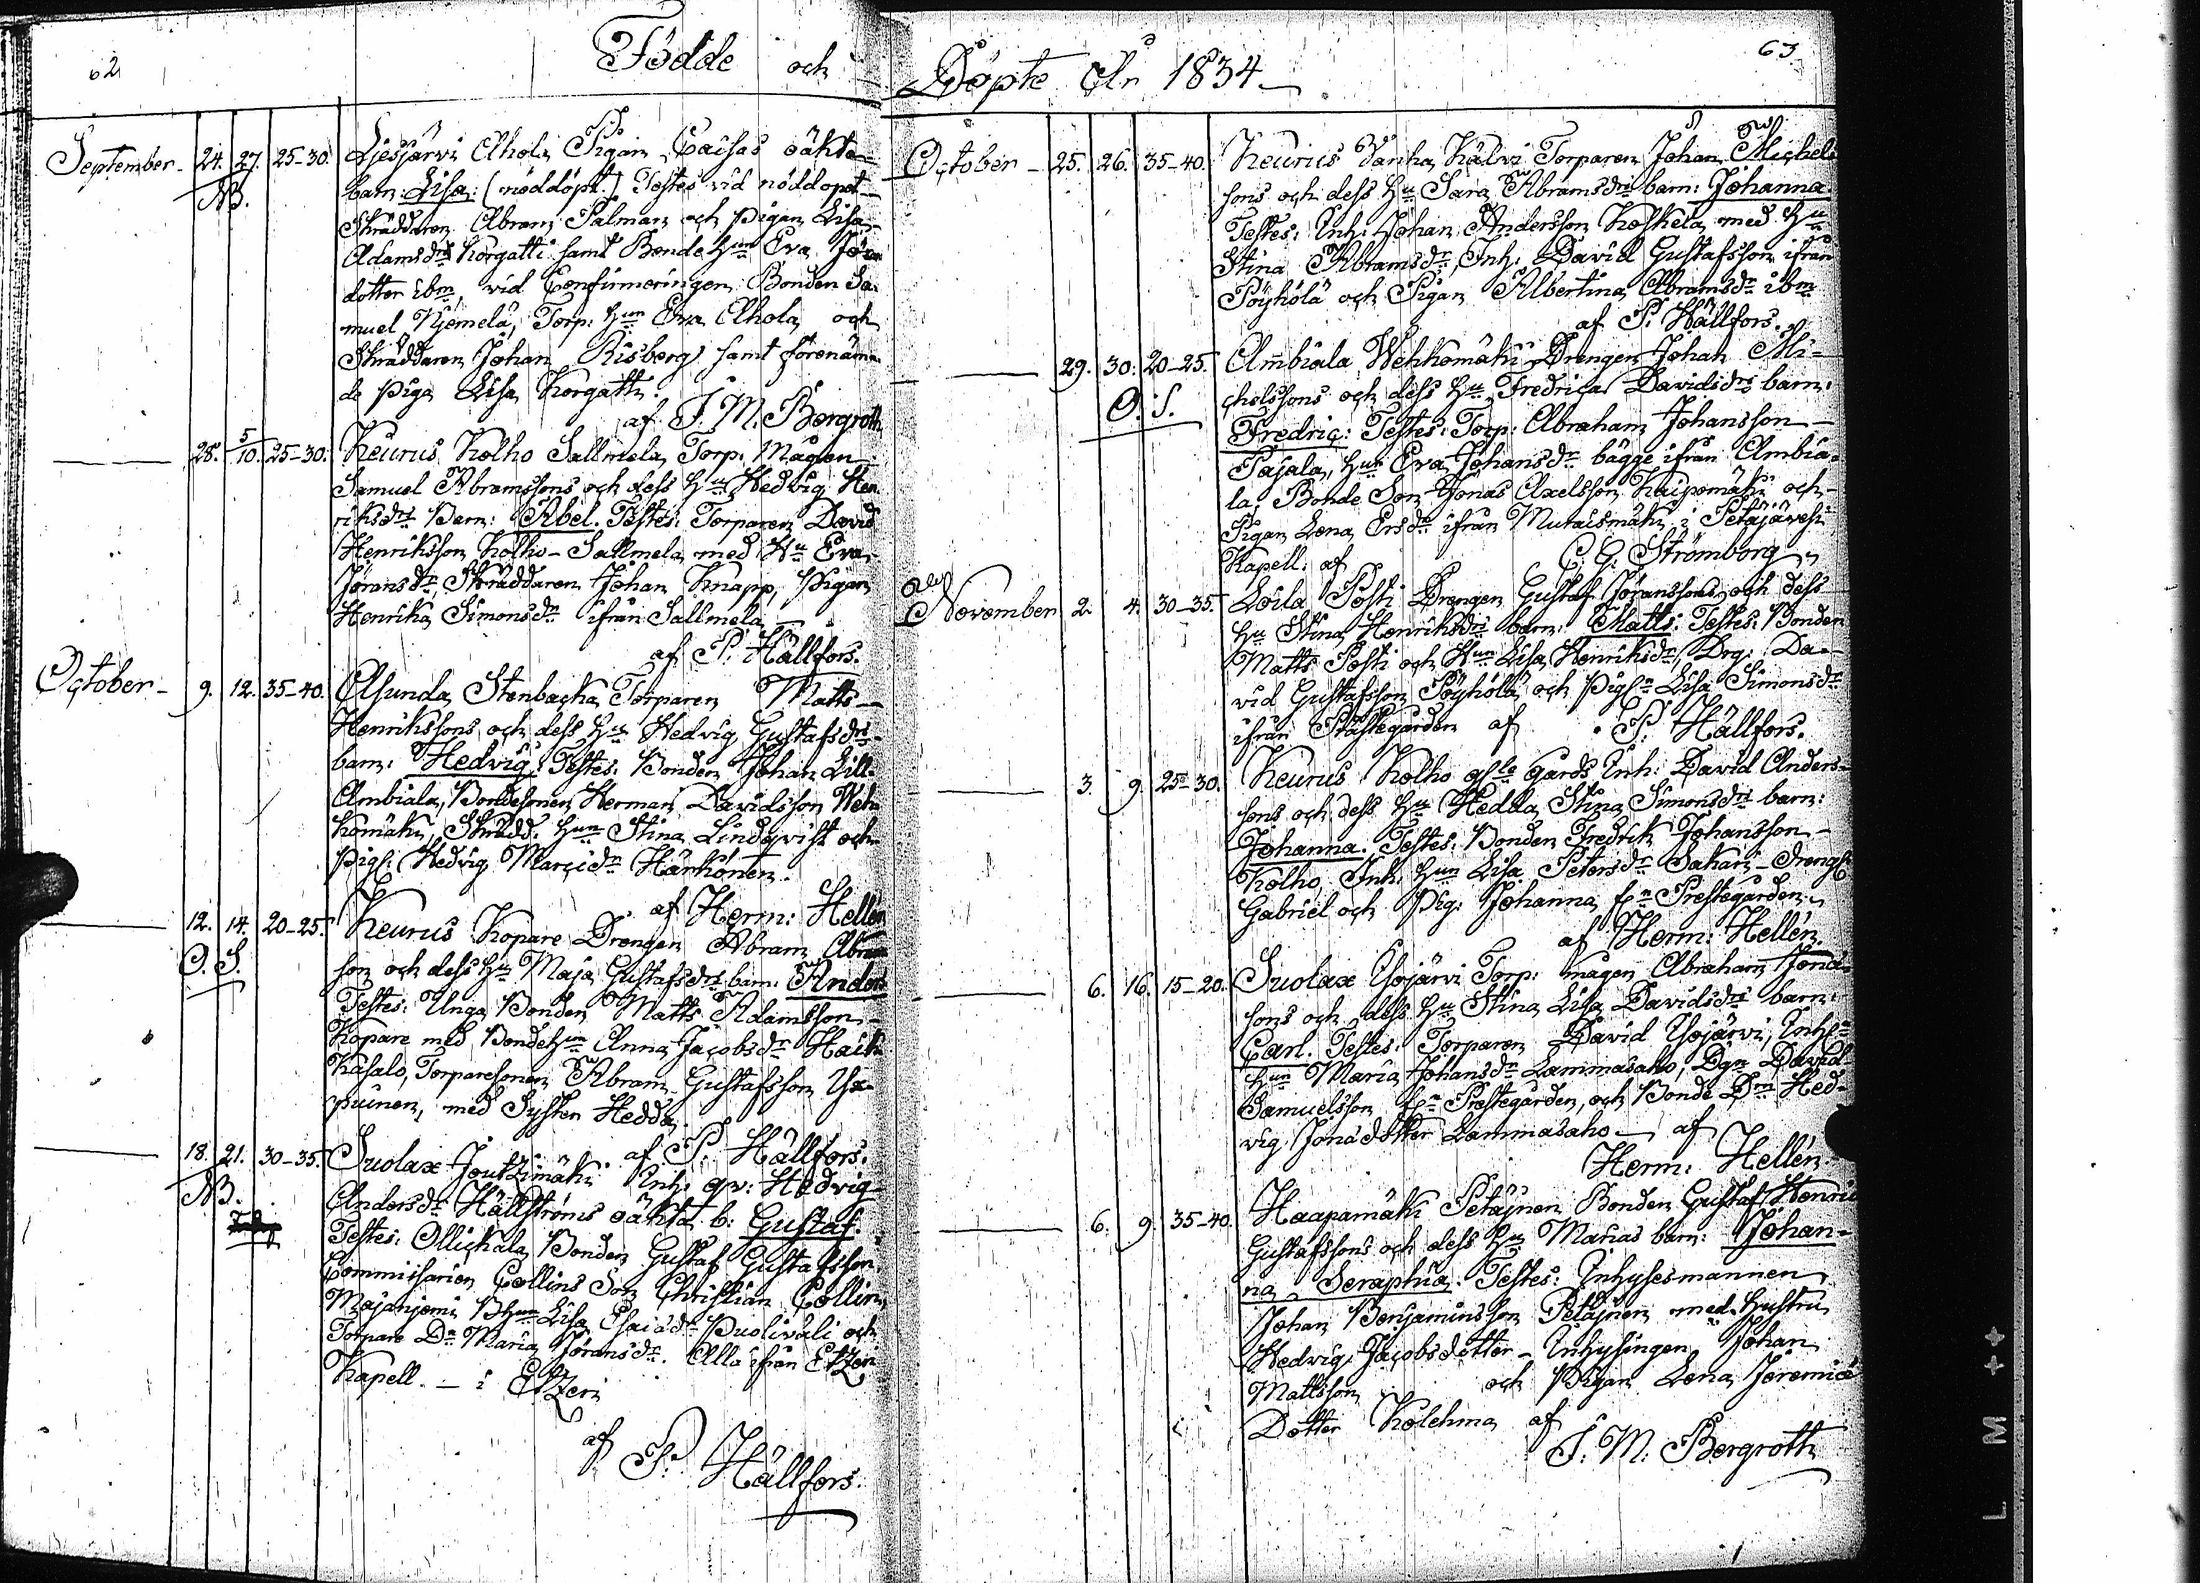 62
Födde och
September 24. 27. 25-30. Liesjärvi Ahola Pigan Caisas oäkta
NB. barn: Lisa: (nöddöpt.) Testes vid nöddopet
Skräddaren Abram Palman och pigan Lisa
Adamsdr Korgatti samt Bonde hun Eva Jöran
dotter ibm, vid Confirmeringen Bonden Sa-
muel Njemelä, Torp: hun Eva Ahola och
Skräddaren Johan Risberg samt förenämn
de piga Lisa Korgatti.
af F. M. Bergroth
28. 5/10. 25-30. Keurus Kolho Sallmela Torp. Mågen
Samuel Abramssons och dess hu Hedvig Hen
riksdrs Barn: Abel. Testes: Torparen David
Henriksson Kolho-Sallmela med Hu Eva
Jöransdr, Skräddaren Johan Knapp, Pigan
Henrika Simonsdr ifrån Sallmela
af P. Hällfors.
October 9. 12. 35-40. Asunda Stenbacka Torparen Matts
Henrikssons och dess hu Hedvig Gustafsdrs
barn: Hedvig: Testes: Bonden Johan Lill-
Ambiala, Bondesonen Herman Davidsson Weh
komäki, Skrädd: hun Stina Lindqvist och
Pigs: Hedvig Marcidr Härkönen.
af Herm: Hellén
12. 14. 20-25. Keurus Kopare Drengen Abram Abram
O. S. son och dess hu Maja Gustafsdrs barn: Anders
Testes: Unga Bonden Matts Adamsson
Kopare med Bondehun Anna Jacobsdr Haik
Kasalo, Torparesonen Abram Gustafsson
puinen, med Syster Hedda.
af P. Hällfors.
18. 21. 30-35. Suolax Joutzimäki Inh: qv: Hedvig
NB. Andersdr Hällströms oäkta b: Gustaf.
Testes: Ollickala Bonden Gustaf Gustafsson
Commissarien Collins Son Christian Collin
Majanjemi Bhun Lisa Esaiædr Puoliväli och
Torpare Dr Maria Jöransdr. Alla ifrån Etzeri
Kapell. - i Etzeri
af P. Hällfors.
63
Döpte År 1834
October 25. 26. 35-40. Keurus Kälvi Torparen Johan Michels
sons och dess hu Sara Abramsdrs barn: Johanna
Testes: Inh: Johan Andersson Koskela med hu
Stina Abramsdr, Inh: David Gustafsson ifrån
Pöyhölä och Pigan Albertina Abramsdr ibm
af P. Hällfors.
29. 30. 20-25. Ambiala Wehkomäki Drengen Johan Mi-
O. S. chelssons och dess hu Fredrica Davidsdrs barn:
Fredric: Testes: Torp: Abraham Johansson
Pajala, hun Eva Johansdr bägge ifrån Ambia-
la, Bonde Son Jonas Axelsson Kaipomäki och
Pigan Lena Ersdr ifrån Mutaismäki i Petäjävesi
Kapell: af C. G. Strömborg
November 2. 4. 30-35. Loila Posti Drengen Gustaf Jöranssons och dess
hu Stina Henriksdrs barn: Matts: Testes: Bonden
Matts Posti och Hun Lisa Henriksdr, Drg: Da-
vid Gustafsson Pöyhölä och Pign Lisa Simonsdr
ifrån Prästegården af P. Hällfors.
3. 9. 25-30. Keurus Kolho gårds Inh: David Anders-
sons och dess hu Hedda Stina Simonsdrs barn:
Johanna. Testes: Bonden Fredrik Johansson
Kolho, Inh: hun Lisa Petersdr Sakari - Drengs
Gabriel och Pig: Johanna fr Prestegården.
af Herm: Hellén.
6. 16. 15-20. Suolax Isojärvi Torp: mågen Abraham Jona-
sons och dess hu Stina Lisa Davidsdrs barn:
Carl. Testes: Torparen David Isojärvi, Inhs
hun Maria Johansdr Lammasaho, Dgn David
Samuelsson fr Prestegården, och Bonde Dn Hed-
vig Jonædotter Lammasaho af
Herm: Hellén.
6. 9. 35-40. Haapamäki Petäjnen Bonden Gustaf Henric
Gustafssons och dess hu Marias barn: Johan-
na Seraphia. Testes: Inhysesmannen
Johan Benjaminsson Petäjnen med hustru
Hedvig Jacobsdotter - Inhysingen Johan
Mattsson och Pigan Lena Jeremiæ
Dotter Kolehma af
F. M. Bergroth
L M ++